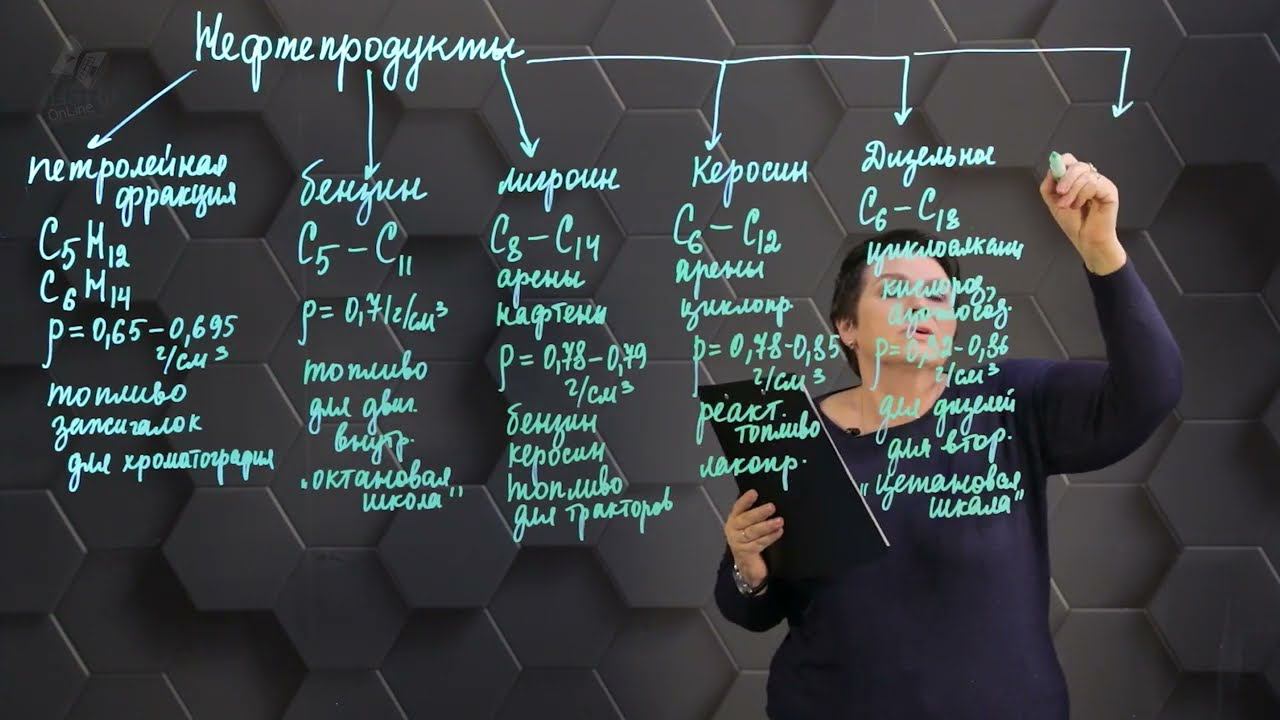 Нефтепродукты
OnLine
петролейная
фракция
C₅H₁₂
C₆H₁₄
ρ = 0,65 – 0,695
г/см³
топливо
зажигалок
для хроматография
бензин
C₅ – C₁₁
ρ = 0,71г/см³
топливо
для двиг.
внутр.
"октановая
школа"
лигроин
C₈ – C₁₄
арены
нафтены
ρ = 0,78 – 0,79
г/см³
бензин
керосин
топливо
для тракторов
Керосин
C₆ – C₁₂
арены
циклопр.
ρ = 0,78-0,85
г/см³
реакт.
топливо
лакопр.
Дизельное
C₆ – C₁₈
циклоалканы
кислород,
ρ = 0,82-0,86
г/см³
для дизелей
для втор.
"цетановая
шкала"